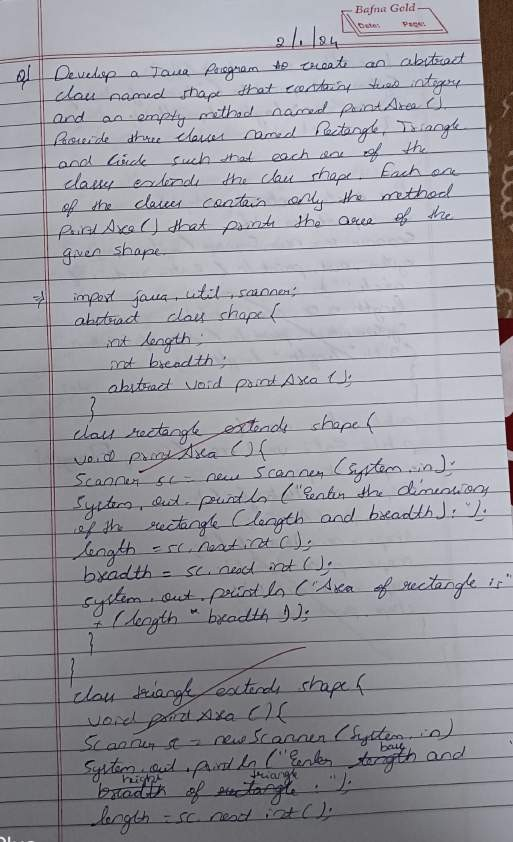 Bafna Gold
Date: Page:
2/1/24
Q1 Develop a Java Program to create an abstract
class named shape that contains two integers
and an empty method named printArea().
Provide three classes named Rectangle, Triangle
and Circle such that each one of the
classes extends the class shape. Each one
of the classes contain only the method
Print Area() that prints the area of the
given shape.
⇒ import java.util.scanner;
abstract class shape {
int length;
int breadth;
abstract void print Area ();
}
class rectangle extends shape {
void print Area () {
Scanner sc = new Scanner (System.in);
System.out.println ("Enter the dimensions
of the rectangle (length and breadth): ");
length = sc.next int ();
breadth = sc.next int ();
system.out.println ("Area of rectangle is"
+ (length * breadth ));
}
}
class triangle extends shape {
void print Area () {
Scanner sc = new Scanner (System.in)
System.out.println ("Enter length base and
breadth height of rectangle triangle : ");
length = sc.next int ();